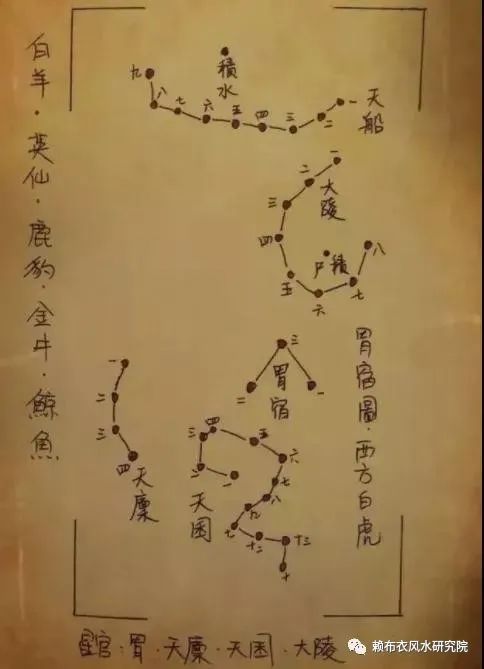 白羊·英仙·鹿豹·金牛·鯨魚
積水
天船
一
二
三
四
五
六
七
八
九
大陵
一
二
三
四
五
六
七
八
積尸
胃宿
一
二
三
胃宿圖·西方白虎
天廩
一
二
三
四
天囷
一
二
三
四
五
六
七
八
九
十
十二
十三
十
星官:胃·天廩·天囷·大陵
赖布衣风水研究院